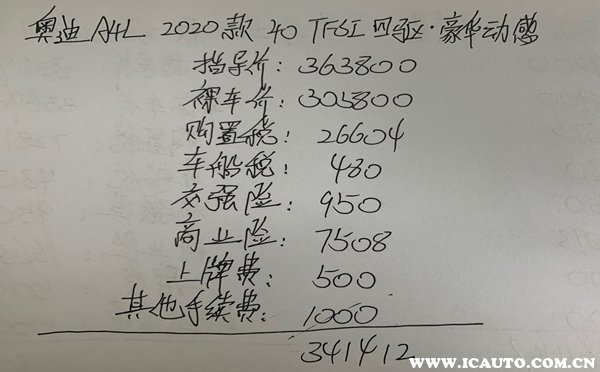 奥迪 A4L 2020款 40 TFSI 四驱·豪华动感
指导价: 363800
裸车价: 305800
购置税: 26604
车船税: 480
交强险: 950
商业险: 7508
上牌费: 500
其他手续费: 1000
341412
WWW.ICAUTO.COM.CN